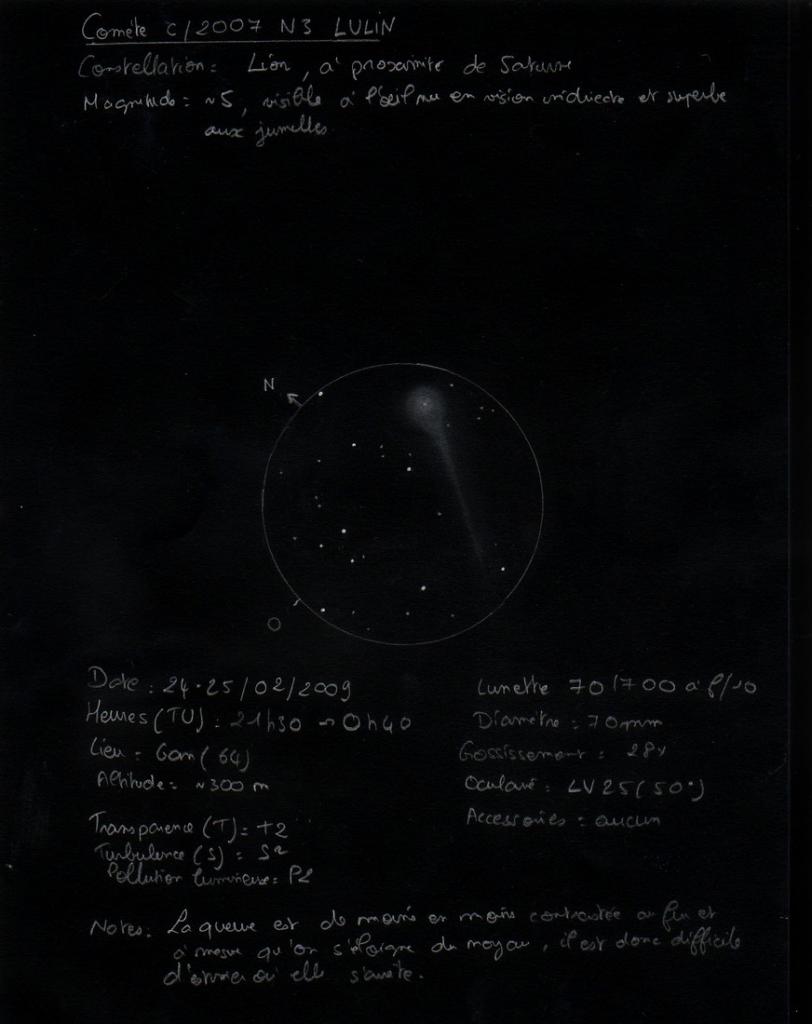 Comète C/2007 N3 LULIN
Constellation: Lion, à proximité de Saturne
Magnitude: ~5, visible à l'œil nu en vision indirecte et superbe
aux jumelles.
N
O
Date: 24-25/02/2009
Heures (TU): 21h30 → 0h40
Lieu: (64)
Altitude: ~300 m
Transparence (T): +2
Turbulence (S): S2
Pollution lumineuse: P2
Lunette 70/700 à f/10
Diamètre: 70mm
Gossissement: 28x
Oculaire: LV25(50°)
Accessoires: aucun
Notes: La queue est de moins en moins contrastée au fur et
à mesure qu'on s'éloigne du noyau, il est donc difficile
d'estimer où elle s'arrête.